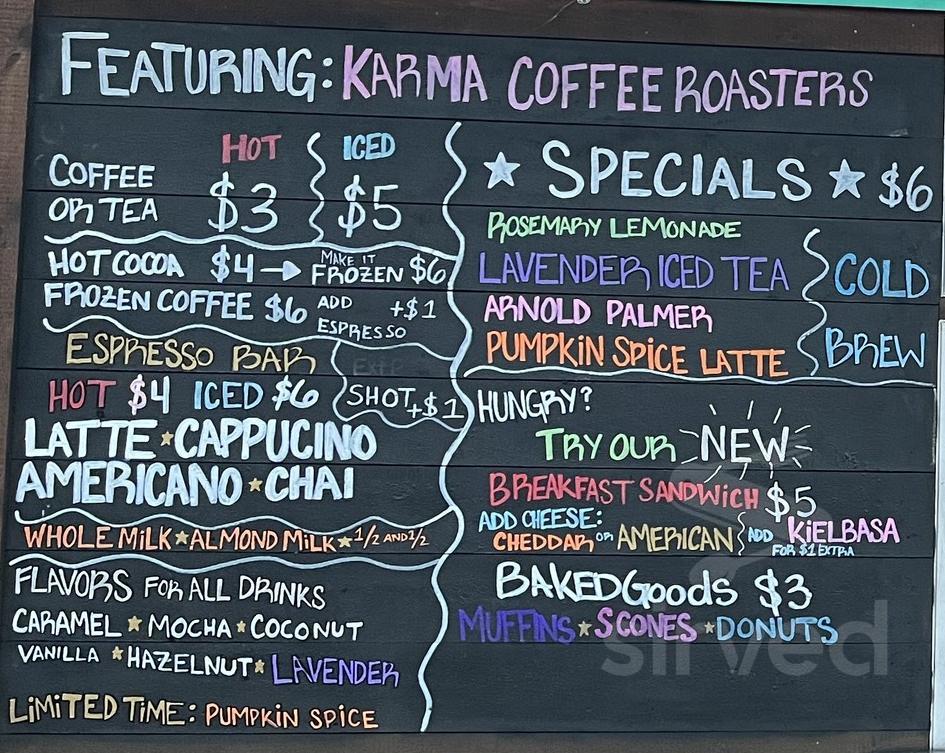 FEATURING: KARMA COFFEE ROASTERS
HOT ICED
COFFEE
OR TEA $3 $5
HOT COCOA $4 → MAKE IT
FROZEN $6
FROZEN COFFEE $6 ADD +$1
ESPRESSO
ESPRESSO BAR
HOT $4 ICED $6 SHOT +$1
LATTE ★ CAPPUCINO
AMERICANO ★ CHAI
WHOLE MILK ★ ALMOND MILK ★ 1/2 AND 1/2
FLAVORS FOR ALL DRINKS
CARAMEL ★ MOCHA ★ COCONUT
VANILLA ★ HAZELNUT ★ LAVENDER
LIMITED TIME: PUMPKIN SPICE
★ SPECIALS ★ $6
ROSEMARY LEMONADE
LAVENDER ICED TEA
ARNOLD PALMER
PUMPKIN SPICE LATTE
COLD
BREW
HUNGRY?
TRY OUR NEW
BREAKFAST SANDWICH $5
ADD CHEESE:
CHEDDAR OR AMERICAN
ADD KIELBASA
FOR $1 EXTRA
BAKED GOODS $3
MUFFINS ★ SCONES ★ DONUTS
sirved